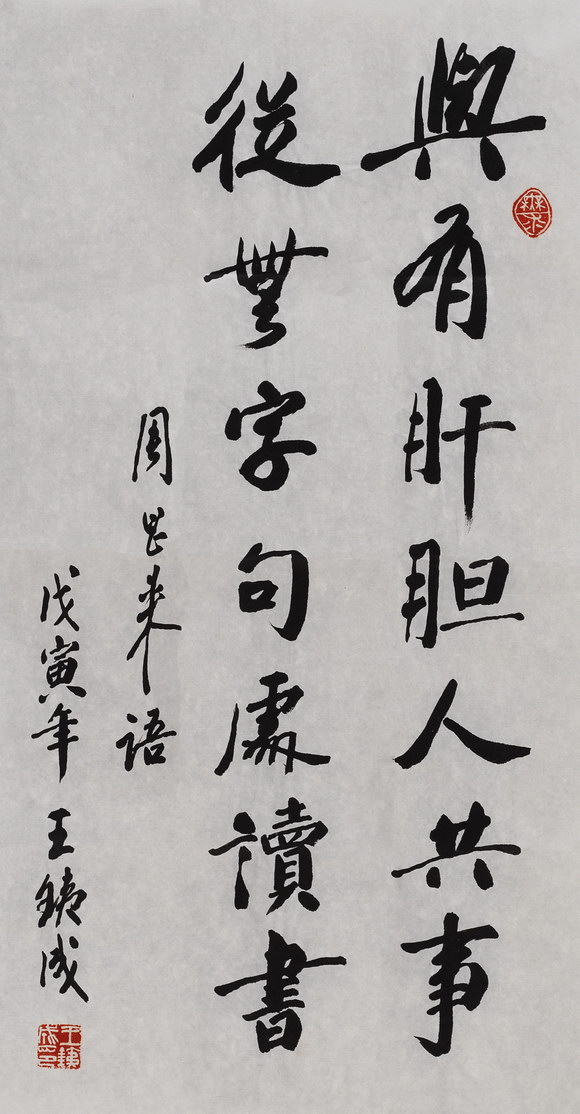 與有肝胆人共事
從無字句處讀書
周恩来语
戊寅年 王鐵成